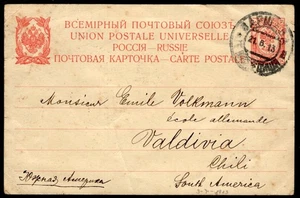 ВСЕМІРНЫЙ ПОЧТОВЫЙ СОЮЗЪ
UNION POSTALE UNIVERSELLE
РОССІЯ—RUSSIE
ПОЧТОВАЯ КАРТОЧКА—CARTE POSTALE
Monsieur Emile Volkmann
école allemande
Valdivia
Chili
Южная, Америка
South America